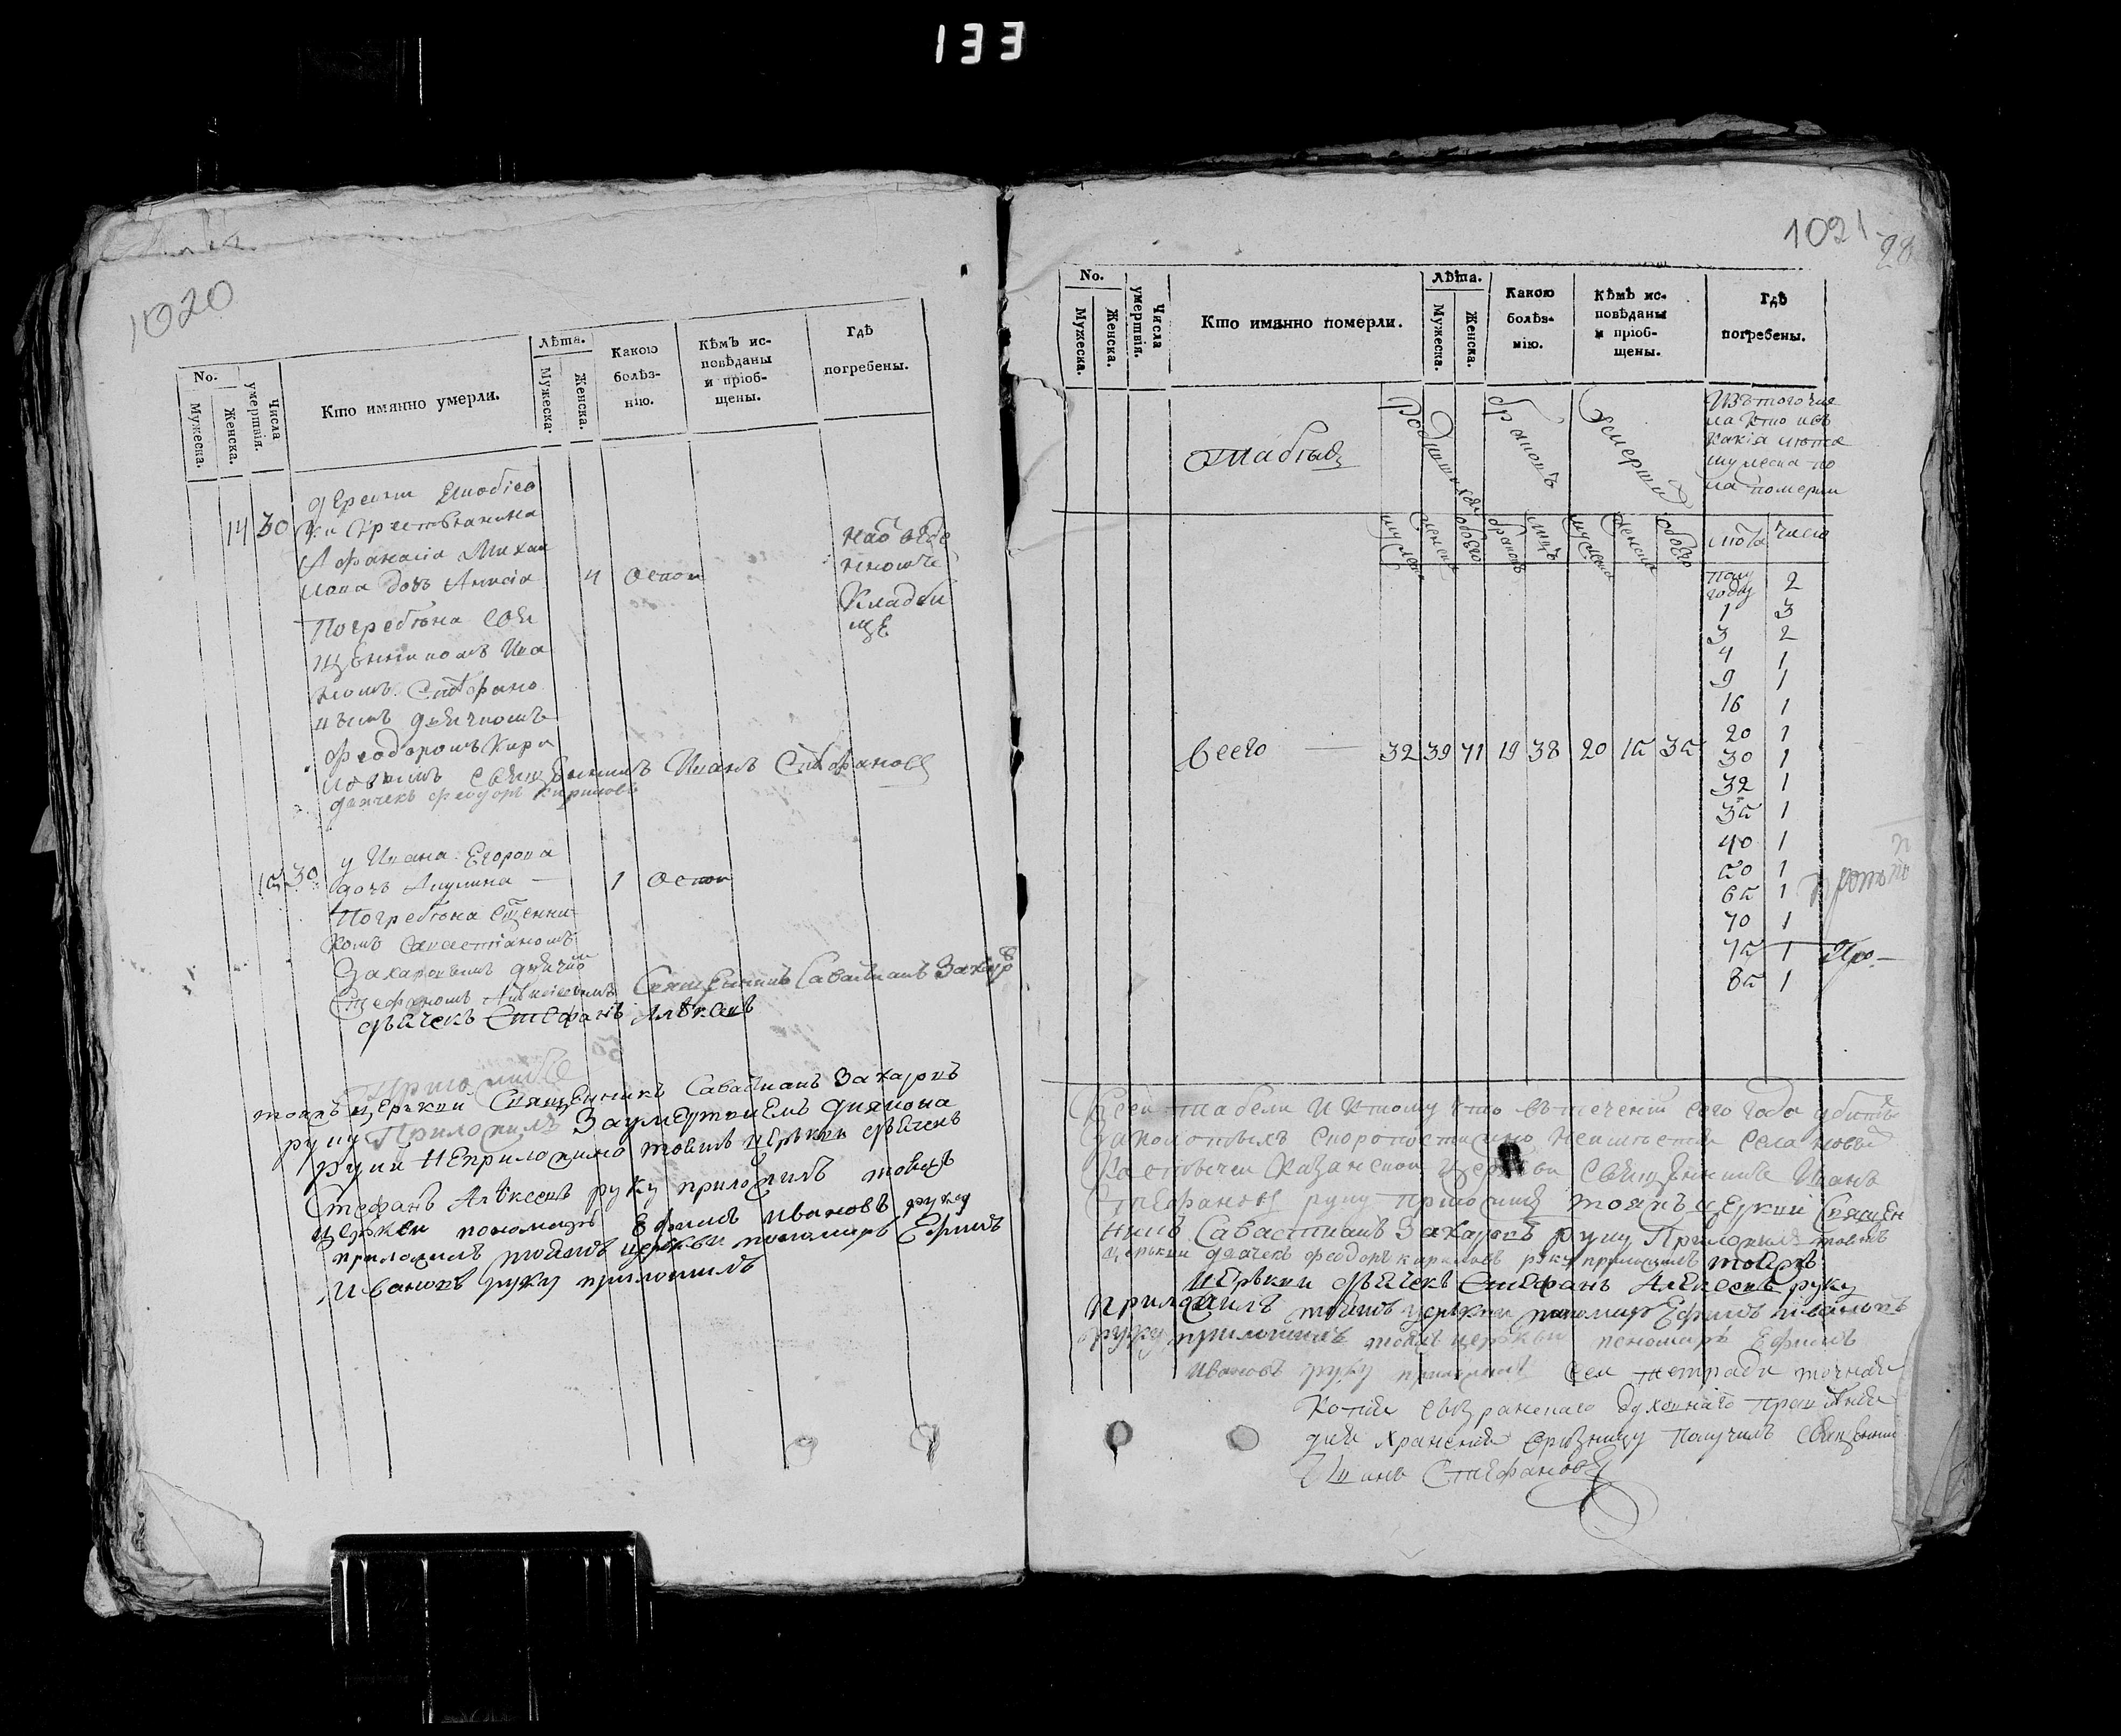 133
1020
No.
Мужеска.
Женска.
Числа умертвія.
Кто имянно умерли.
Лѣта.
Мужеска.
Женска.
Какою болѣз-
нію.
Кѣмъ ис-
повѣданы
и пріоб-
щены.
Гдѣ
погребены.
14 30
крестьянина
Афанасіа Михаи
лова дочь Анисіа 4 Оспою
Погребена свя
щенникомъ Ива
номъ Стефано
вымъ дьячкомъ
Феодоромъ Кири
ловымъ священникъ Иванъ Стефановъ
дьячекъ Феодоръ Кириловъ
на обще
кладби
щѣ
15 30 у Ивана Егорова
дочь Акулина 1 Оспою
Погребена сщенни
комъ Савастіаномъ
Захаровымъ дьячко
Стефаномъ Алексеевымъ Священникъ Савастианъ Захаровъ
дьячекъ Стефанъ Алексеевъ
тояжъ церкви Священникъ Савастианъ Захаровъ
руку Приложилъ За умертвиемъ диякона
руки неприложено тояжъ церкви дьячекъ
Стефанъ Алексеевъ руку приложилъ тояжъ
церкви пономарь Ефимъ Ивановъ руку
приложилъ тояжъ церкви пономарь Ефимъ
Ивановъ руку приложилъ
1021
28
No.
Мужеска.
Женска.
Числа умертвія.
Кто имянно померли.
Лѣта.
Мужеска.
Женска.
Какою
болѣз-
нію.
Кѣмъ ис-
повѣданы
и пріоб-
щены.
Гдѣ
погребены.
Табель
Родившихся
браковъ
умерших
Изъ того чис
ла кто въ
какія лѣта
мужеска по
ла померли
мужеска женска обоего браковъ лицъ мужеска женска обоего лѣта число
Всего 32 39 71 19 38 20 15 35
полу
году 2
1 3
3 2
4 1
9 1
16 1
20 1
30 1
32 1
35 1
40 1
50 1
65 1
70 1
75 1
85 1
Всей табели И ктому что въ течении сего года убитыхъ
скоропостижно села
Казанской церкви священникъ Иванъ
Стефановъ руку приложилъ тояжъ церкви Священ
никъ Савастианъ Захаровъ руку Приложилъ тояжъ
церкви дьячекъ Феодоръ Кириловъ руку приложилъ тояжъ
церкви дьячекъ Стефанъ Алексеевъ руку
приложилъ тояжъ церкви пономарь Ефимъ Ивановъ
руку приложилъ тояжъ церкви пономарь Ефимъ
Ивановъ руку приложилъ Сей тетради точная
Копия Сызранскаго духовнаго правления
для хранения в ризницу получилъ священник
Иванъ Стефановъ